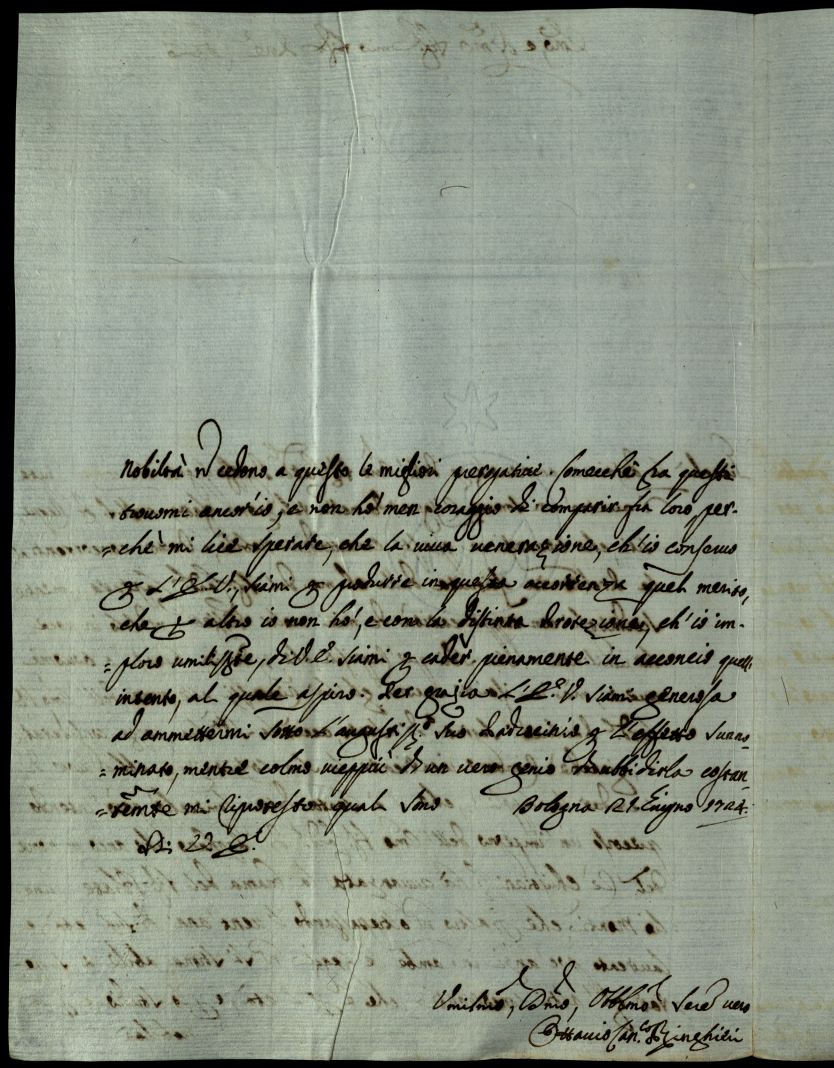 Nobiltà n cedono a questo le migliori prerogative. Comecchè fra questi
trovomi ancor'io, e non hò men coraggio di comparir frà loro, per-
=chè mi lice sperare, che la viva venerazione, ch'io conservo
L'E. V., siami produrre in questa occorrenza quel merito,
che altro io non hò, e con la distinta Protezione, ch'io im-
=ploro umilisste, di V. E. siami cader pienamente in acconcio quell'
intento, al quale aspiro. Per grazia L'E. V. siami generosa
ad ammettermi sotto L'augustiss.o Suo Patrocinio L'effetto sunno-
=minato, mentre colmo vieppiù di un vero genio di ubbidirla costan-
=temte mi riprotesto qual sono Bologna 21 Giugno 1724.
Di: V.E.
Umilmo, Dmo, Obblmo Serv vero
Ottavio Can.co Ringhieri